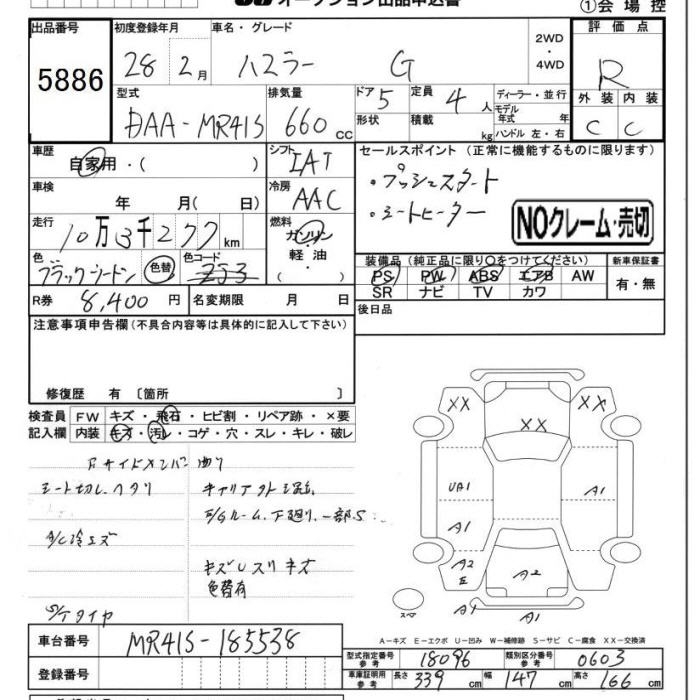 オークション出品申込書
①会場控
出品番号
5886
初度登録年月
28 2月
車名・グレード
ハスラー G
2WD
・
4WD
評価点
R
型式
DAA-MR41S
排気量
660 cc
ドア 5
形状
定員 4 人
積載 kg
ディーラー・並行
モデル
年式 年
ハンドル 左・右
外装 内装
C C
車歴
自家用・( )
シフト
IAT
セールスポイント (正常に機能するものに限ります)
・プッシュスタート
・シートヒーター
NOクレーム・売切
車検
年 月( 日)
冷房
AAC
走行
10万3千277km
燃料
ガソリン
軽油
・( )
色
ブラックツートン
色替
色コード
装備品 (純正品に限り○をつけてください)
PS PW ABS エアB AW
SR ナビ TV カワ
新車保証書
有・無
R券 8,400 円
名変期限 月 日
後日品
注意事項申告欄(不具合内容等は具体的に記入して下さい)
修復歴 有 〔箇所 〕
検査員 FW キズ・飛石・ヒビ割・リペア跡・×要
記入欄 内装 キズ・汚レ・コゲ・穴・スレ・キレ・破レ
Fサイドメンバー曲り
シート切レ、ヘタリ
A/C冷エズ
下廻り、一部S
色替有
S/Tタイヤ
XX XX XX
UA1 A1
A1
A2
E
A2
スペア A1 A1
A-キズ E-エクボ U-凹み W-補修跡 S-サビ C-腐食 XX-交換済
車台番号 MR41S-185538
登録番号
型式指定番号
参考
18096
類別区分番号
参考
0603
車庫証明用
参考
長さ 339 cm 幅 147 cm 高さ 166 cm